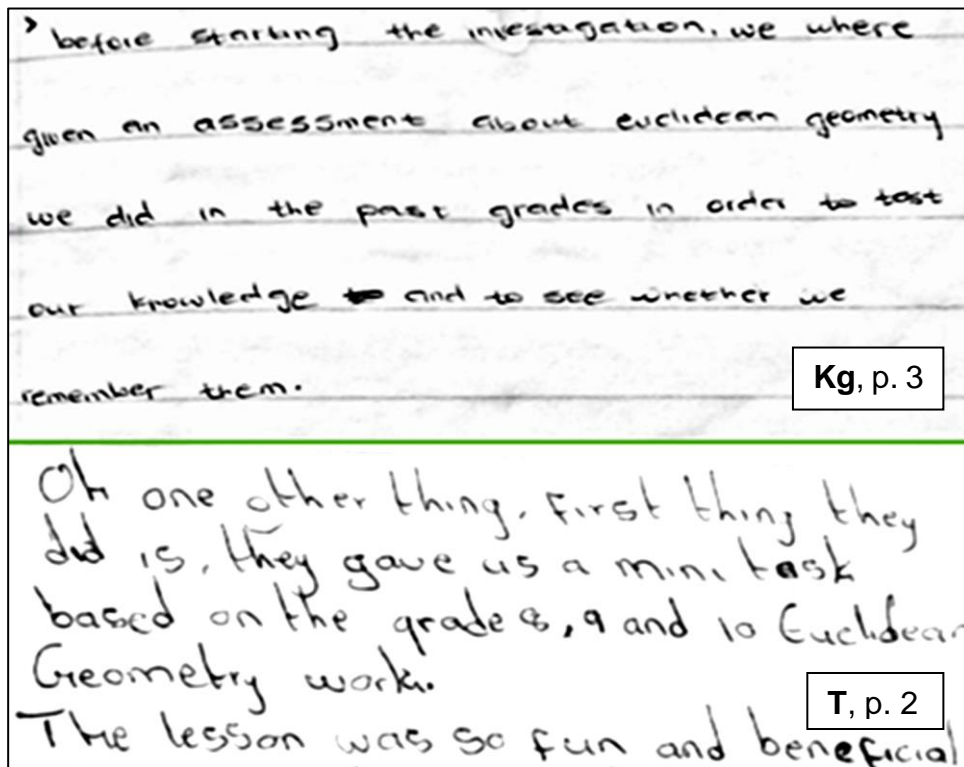 > before starting the investigation, we where
given an assessment about euclidean geometry
we did in the past grades in order to test
our knowledge and to see whether we
remember them.
Kg, p. 3
Oh one other thing, first thing they
did is, they gave us a mini task
based on the grade 8, 9 and 10 Euclidean
Geometry work.
T, p. 2
The lesson was so fun and beneficial